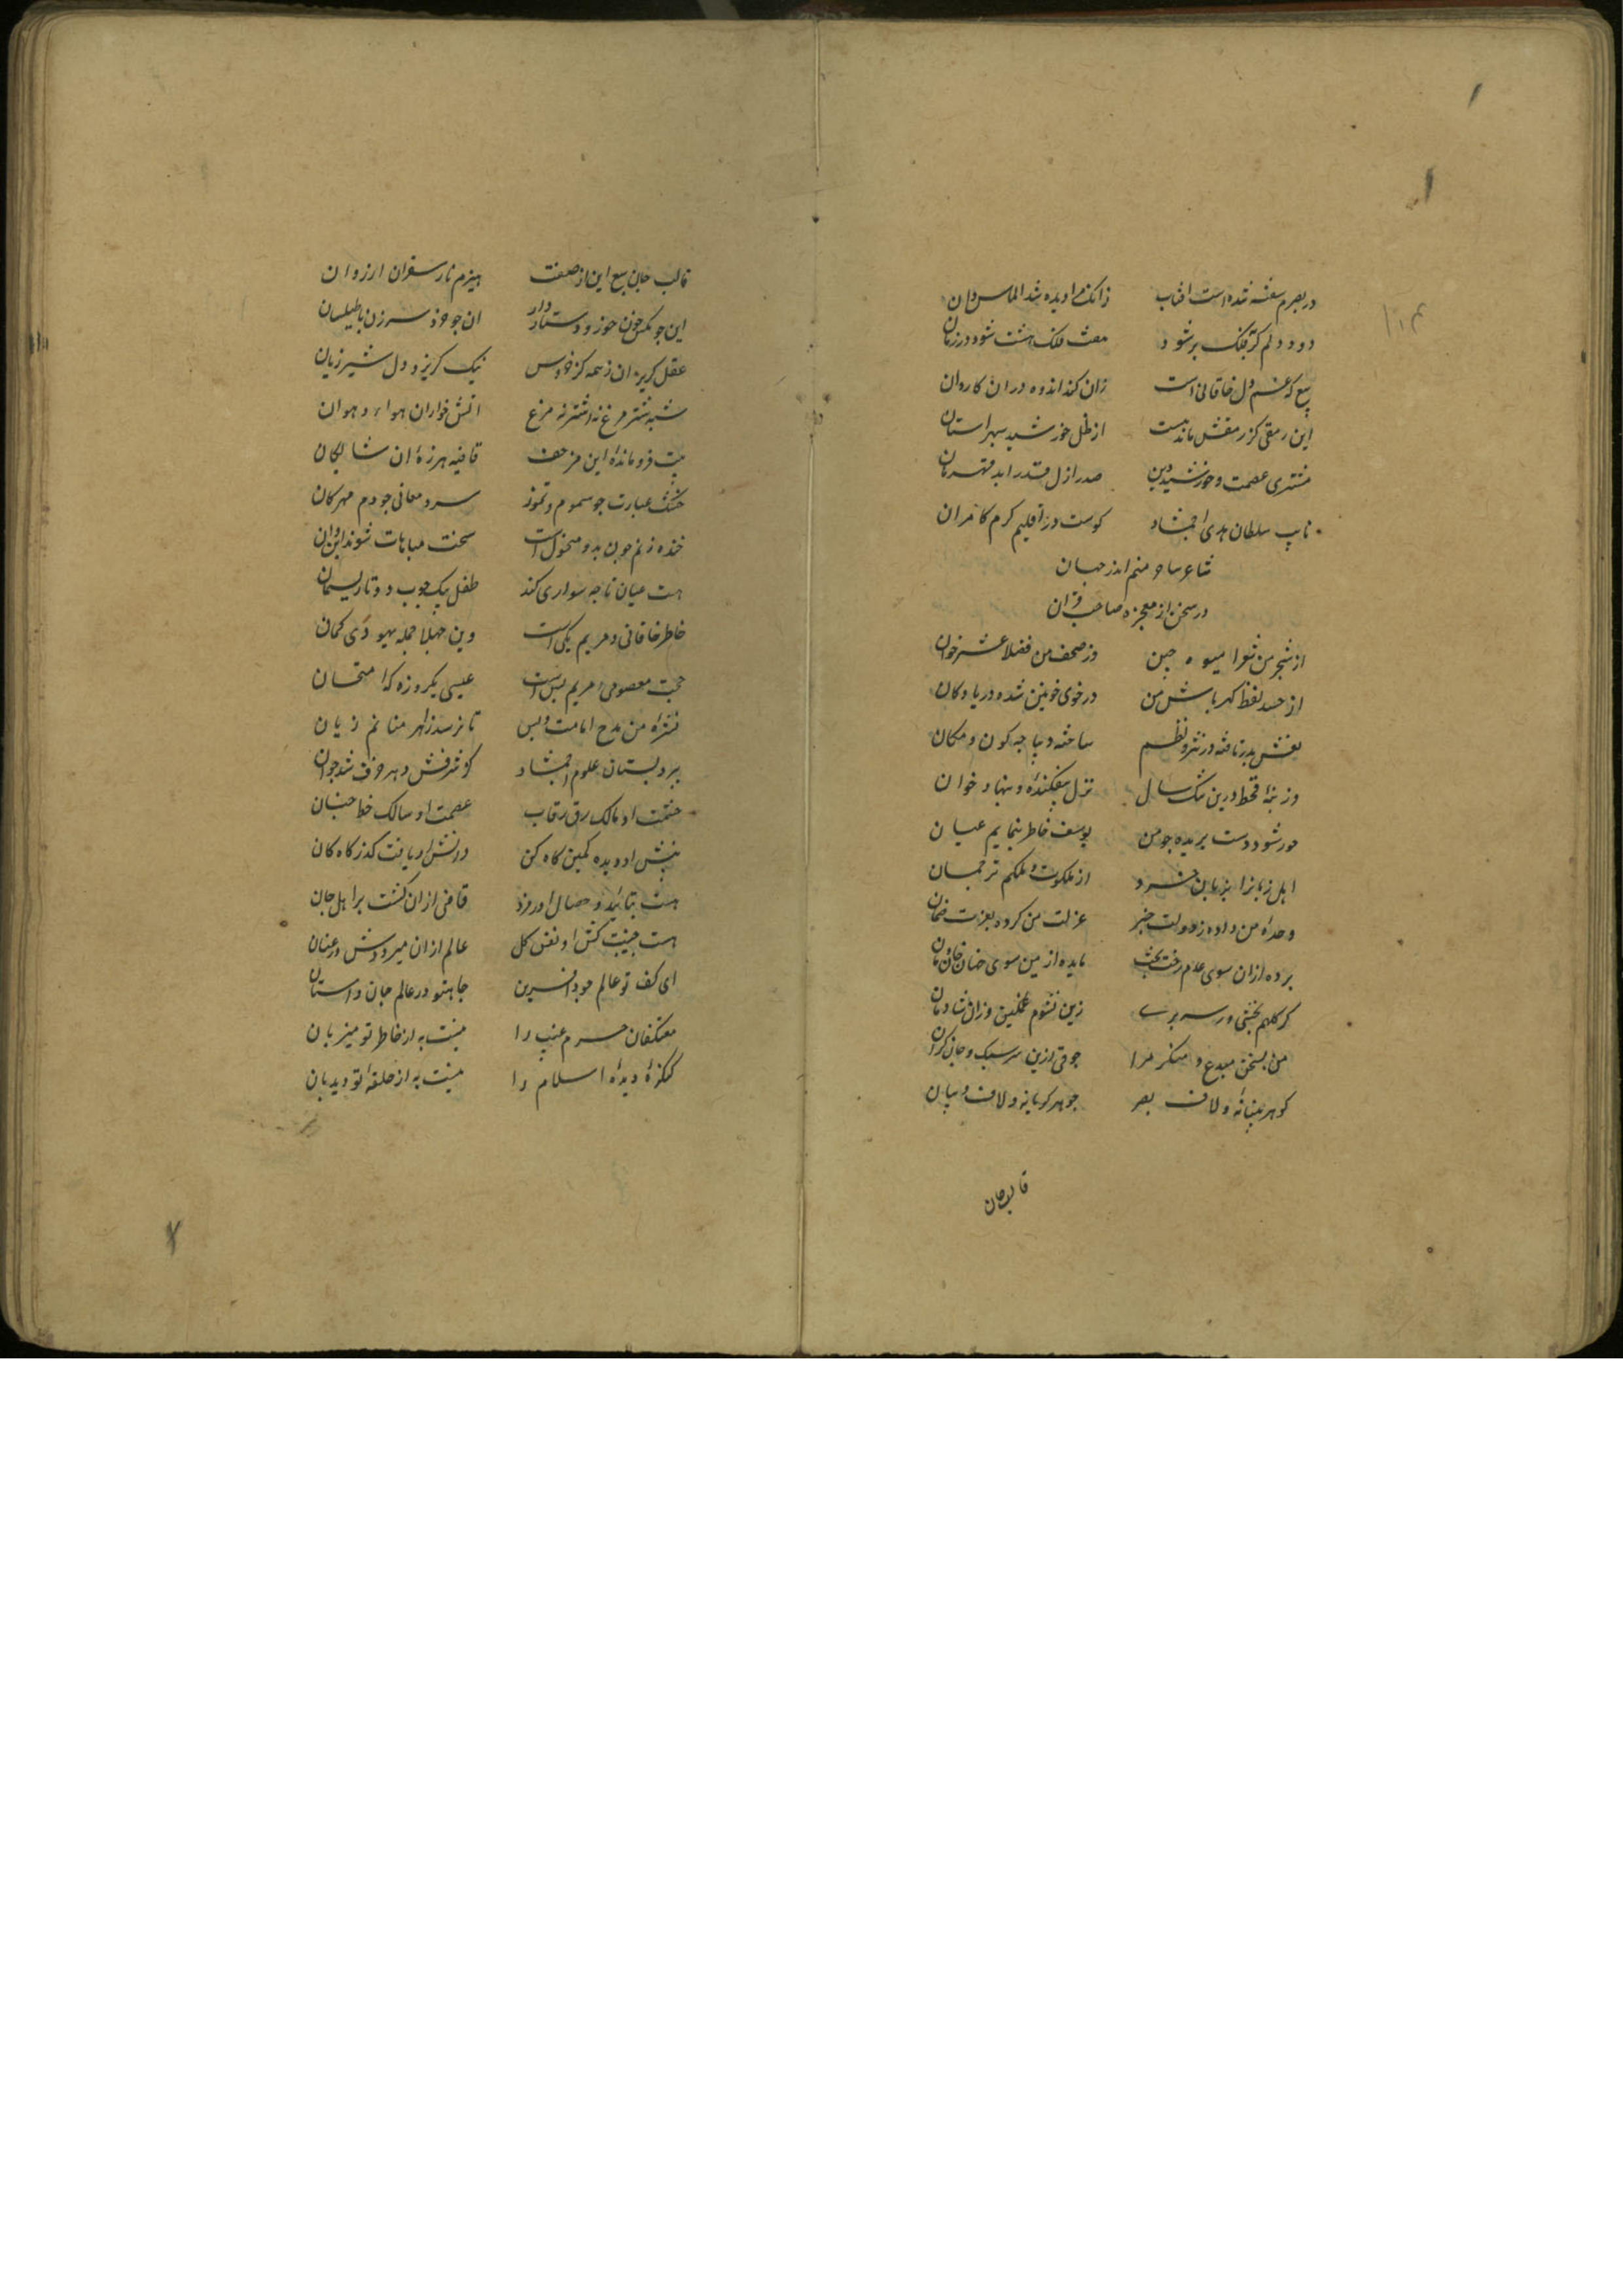 در بصرم سفته شده است افتاب    زانک مرا دیده شد الماس دان
دود دلم کر بفلک بر شود    هفت فلک هشت شود در زمان
کر غم دل خاقانی است    زان کند اندوه در ان کاروان
این رمقی کز رمقش ماند نیست    از ظل خورشید سپهر استان
مشتری عصمت و خورشید دین    صدر ازل قدر ابد قهرمان
نایب سلطان هدی احمشاد    کوست در اقلیم کرم کامران
شاعر ساحر منم اندر جهان
در سخن از معجزه صاحب قران
از شجر من شعرا میوه چین    وز صحف من فضلا عشر خوان
از حسد لفظ کهر پاش من    در خوی خونین شده دریا و کان
نقش بدر تافته در نثر و نظم    ساخته دیباجه کون و مکان
وز پی قحط درین تنک سال    نزل بیفکنده و بنهاد خوان
خور شود دست بریده چو من    یوسف خاطر بنمایم عیان
اهل زمانرا بزبان خرد    از ملکوت و ملکم ترجمان
وحدة من داده ز دولت خبر    عزلت من کرده بعزت ضمان
برده ازان سوی عدم رخت بخت    مانده ازین سوی جهان خان و مان
کر کلهم بخشی ور سر بری    زین نشوم غمکین وزان شادمان
من بسخن مبدع و منکر مرا    جوقی ازین سر سبک و جان کران
کوهر بینائه و لاف بصر    جوهر کریانه و لاف بیان
قالب جان
قالب جان    هیزم نار سقران ارزوان
این جو مکس خون خور و دستار دار    ان جو خروس سرزن با طیلسان
عقل کریزان ز همه کز خروس    نیک کریزد دل شیر ژیان
شبه شتر مرغ نه اشتر نه مرغ    اتش خواران هوا و هوان
بیت فرومانده این منزحف    قافیه هرزه ان شایکان
خشک عبارت جو سموم تموز    سرد معانی جو دم مهرکان
خنده زنم چون بدو منحول    سخت مباهات شوند این و ان
هست عیان تا چه سواری کند    طفل بیک چوب و دو تا ریسمان
خاطر خاقانی و مریم یکی است    وین جهلا جمله یهودی کمان
حجت معصومی مریم بس است    عیسی یکروزه که امتحان
نشره من مدح امامت و بس    تا نرسد زاهر منانم زیان
پیر دبستان علوم احمشاد    کز شرفش دهر خرف شد جوان
حشمت او مالک رق رقاب    عصمت او سالک خط جنان
بینش او دیده کمین کاه کن    دانش او یافت کذر کاه کان
هست بتائید و خصال اورمزد    قاضی ازان کشت بر اهل جهان
هست جنیبت کش او نفس کل    عالم ازان میرودش در عنان
ای کف تو عالم جود افرین    جاه تو در عالم جان داستان
معتکفان حرم غیب را    نیست به از خاطر تو میزبان
کنکره دیده اسلام را    نیست به از حلقه تو دیدبان